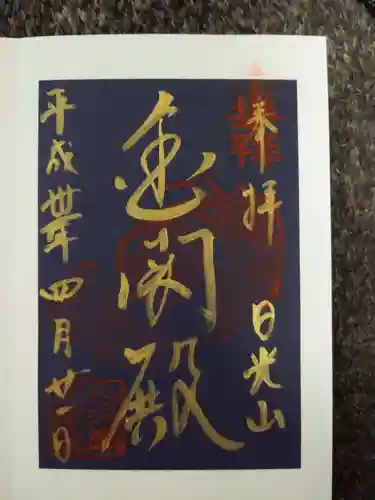 奉拝 日光山
金閣殿
平成卅年四月廿一日